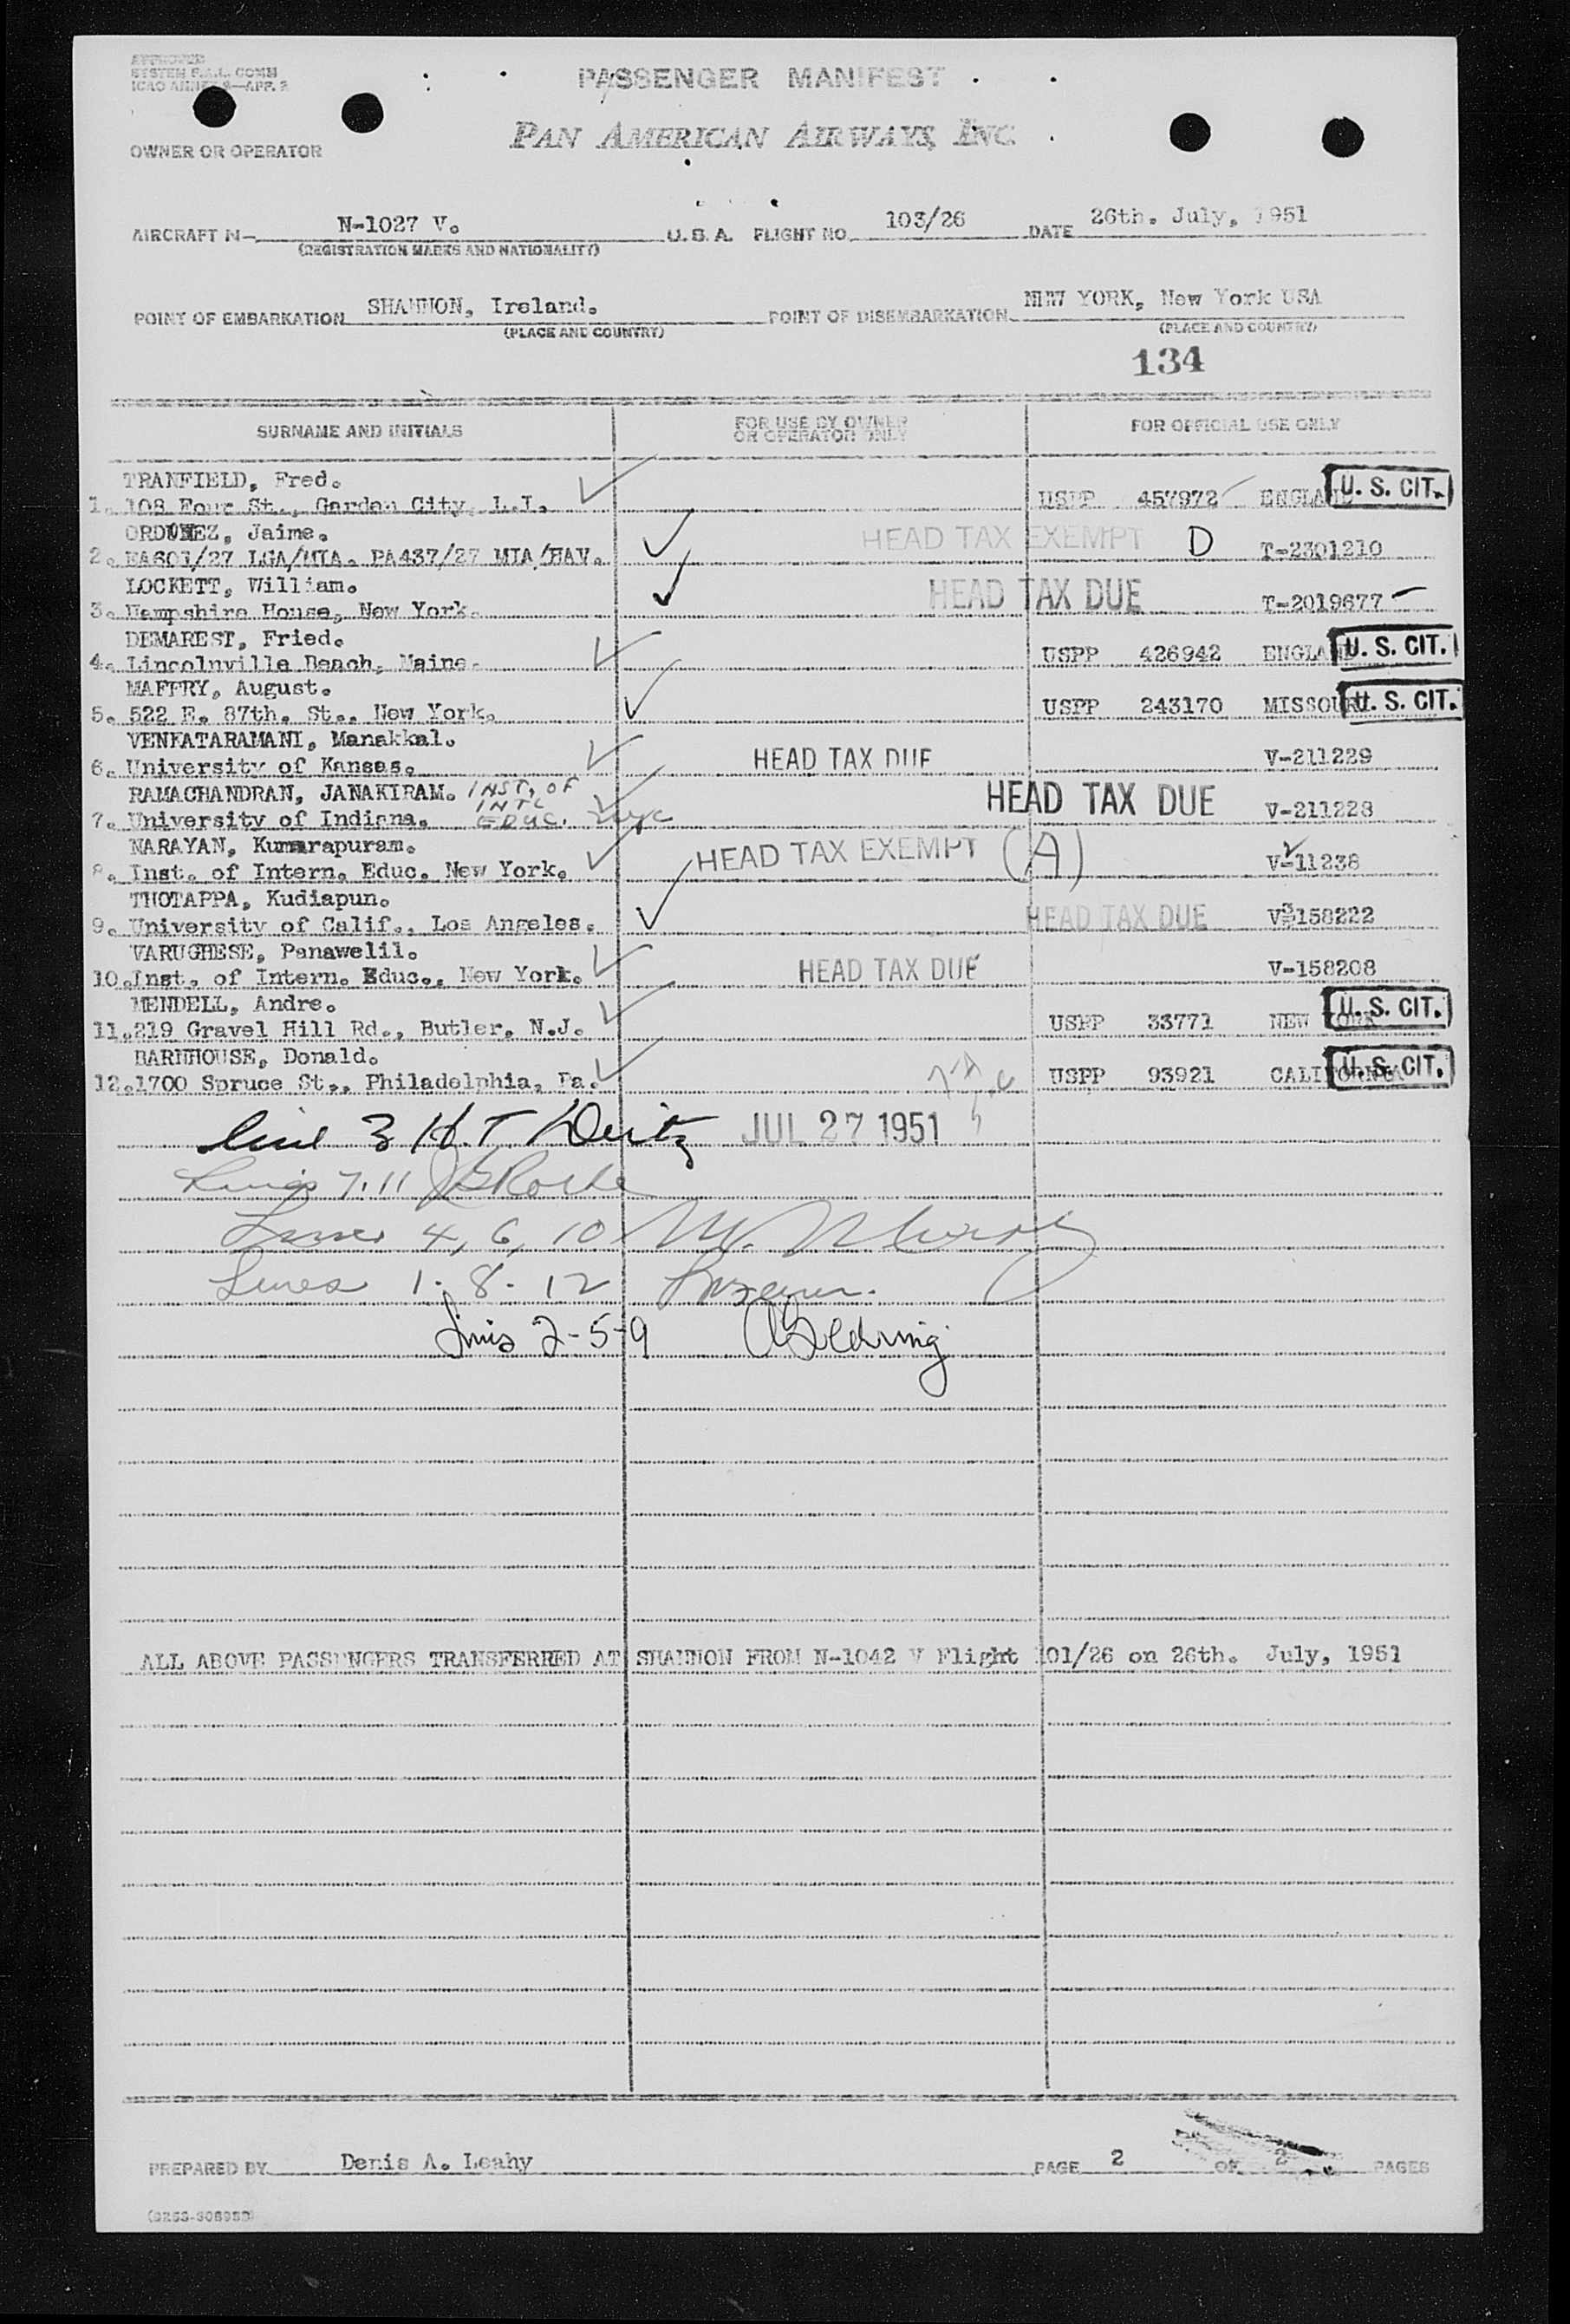 APPROVED
SYSTEM F.A.L. COMM
ICAO ANNEX 9—APP. 2
PASSENGER MANIFEST
PAN AMERICAN AIRWAYS, INC.
OWNER OR OPERATOR
AIRCRAFT N- N-1027 V. U.S.A. FLIGHT NO. 103/26 DATE 26th. July, 1951
(REGISTRATION MARKS AND NATIONALITY)
POINT OF EMBARKATION SHANNON, Ireland. POINT OF DISEMBARKATION NEW YORK, New York USA
(PLACE AND COUNTRY) (PLACE AND COUNTRY)
134
SURNAME AND INITIALS FOR USE BY OWNER OR OPERATOR ONLY FOR OFFICIAL USE ONLY
TRANFIELD, Fred.
1. 108 Four St., Garden City, L.I. USPP 457972 ENGLAND U. S. CIT.
ORDUNEZ, Jaime. HEAD TAX EXEMPT D
2. EA601/27 LGA/MIA. PA437/27 MIA/HAV. T-2301210
LOCKETT, William. HEAD TAX DUE
3. Hampshire House, New York. T-2019677
DEMAREST, Fried.
4. Lincolnville Beach, Maine. USPP 426942 ENGLAND U. S. CIT.
MAFFRY, August.
5. 522 E. 87th. St., New York. USPP 243170 MISSOURI U. S. CIT.
VENKATARAMANI, Manakkal.
6. University of Kansas. HEAD TAX DUE V-211229
RAMACHANDRAN, JANAKIRAM. INST. OF INTL EDUC. NYC HEAD TAX DUE
7. University of Indiana. V-211228
NARAYAN, Kumarapuram.
8. Inst. of Intern. Educ. New York. HEAD TAX EXEMPT (A) V-11238
THOTAPPA, Kudiapun.
9. University of Calif., Los Angeles. HEAD TAX DUE V-158222
VARUGHESE, Panawelil.
10. Inst. of Intern. Educ., New York. HEAD TAX DUE V-158208
MENDELL, Andre.
11. 219 Gravel Hill Rd., Butler, N.J. USPP 33771 NEW YORK U. S. CIT.
BARNHOUSE, Donald.
12. 1700 Spruce St., Philadelphia, Pa. USPP 93921 CALIFORNIA U. S. CIT.
Line 3 H.T. Deitz JUL 27 1951
Lines 7.11
Lines 4, 6, 10
Lines 1. 8. 12
Lines 2-5-9
ALL ABOVE PASSENGERS TRANSFERRED AT SHANNON FROM N-1042 V Flight 101/26 on 26th. July, 1951
PREPARED BY Denis A. Leahy PAGE 2 OF 2 PAGES